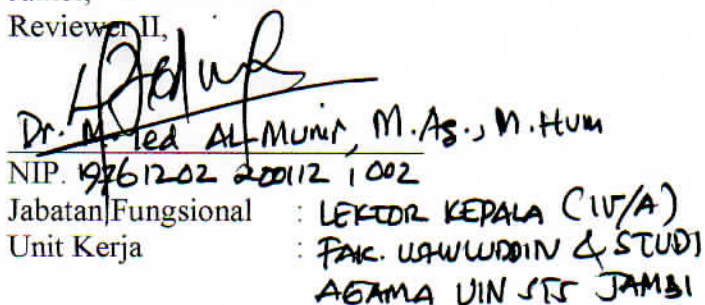 Reviewer II,
Dr. M. Ied AL-Munir, M.Ag., M.Hum
NIP. 19761202 200112 1 002
Jabatan Fungsional : LEKTOR KEPALA (IV/A)
Unit Kerja : FAK. USHULUDDIN & STUDI
AGAMA UIN STS JAMBI